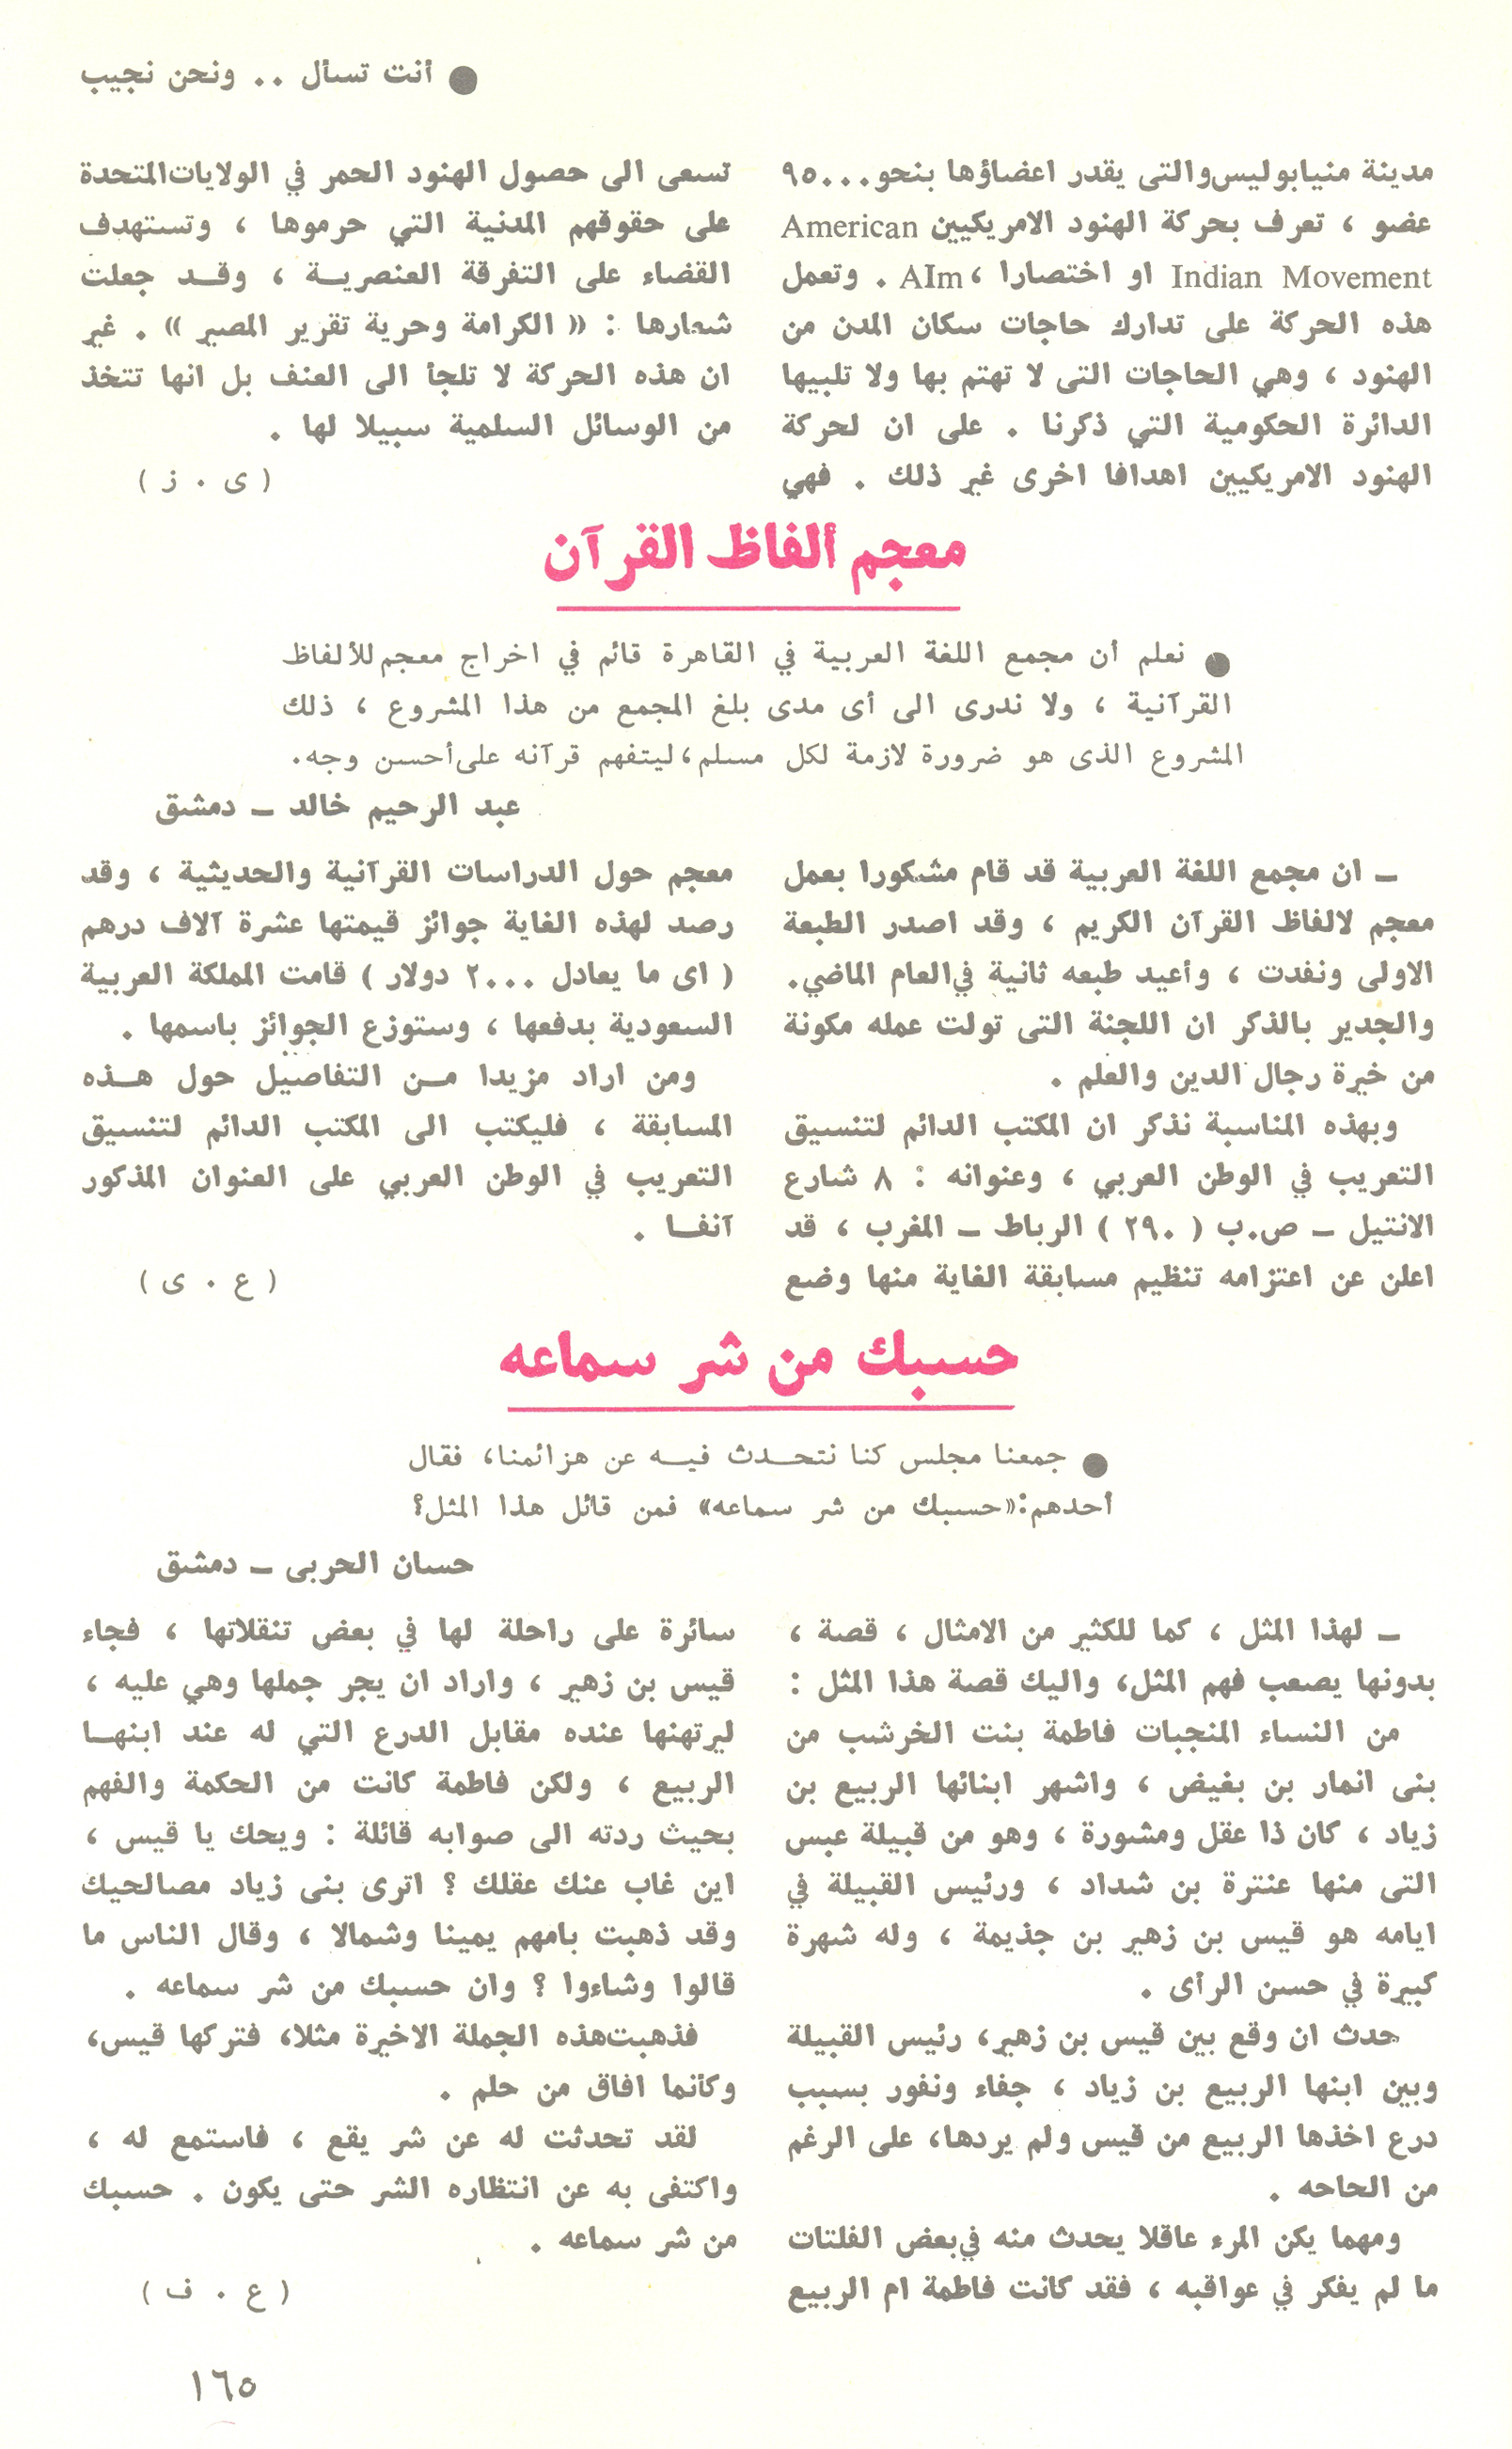 ● أنت تسأل .. ونحن نجيب
مدينة منيابوليس والتى يقدر اعضاؤها بنحو ٩٥٠٠٠
عضو ، تعرف بحركة الهنود الامريكيين American
Indian Movement او اختصارا ، AIm . وتعمل
هذه الحركة على تدارك حاجات سكان المدن من
الهنود ، وهي الحاجات التى لا تهتم بها ولا تلبيها
الدائرة الحكومية التي ذكرنا . على ان لحركة
الهنود الامريكيين اهدافا اخرى غير ذلك . فهي
تسعى الى حصول الهنود الحمر في الولايات المتحدة
على حقوقهم المدنية التي حرموها ، وتستهدف
القضاء على التفرقة العنصرية ، وقد جعلت
شعارها : « الكرامة وحرية تقرير المصير » . غير
ان هذه الحركة لا تلجأ الى العنف بل انها تتخذ
من الوسائل السلمية سبيلا لها .
( ى . ز )
معجم ألفاظ القرآن
● نعلم أن مجمع اللغة العربية في القاهرة قائم في اخراج معجم للألفاظ
القرآنية ، ولا ندرى الى أى مدى بلغ المجمع من هذا المشروع ، ذلك
المشروع الذى هو ضرورة لازمة لكل مسلم ، ليتفهم قرآنه على أحسن وجه .
عبد الرحيم خالد – دمشق
– ان مجمع اللغة العربية قد قام مشكورا بعمل
معجم لالفاظ القرآن الكريم ، وقد اصدر الطبعة
الاولى ونفدت ، وأعيد طبعه ثانية في العام الماضي .
والجدير بالذكر ان اللجنة التى تولت عمله مكونة
من خيرة رجال الدين والعلم .
وبهذه المناسبة نذكر ان المكتب الدائم لتنسيق
التعريب في الوطن العربي ، وعنوانه : ٨ شارع
الانتيل – ص.ب ( ٢٩٠ ) الرباط – المغرب ، قد
اعلن عن اعتزامه تنظيم مسابقة الغاية منها وضع
معجم حول الدراسات القرآنية والحديثية ، وقد
رصد لهذه الغاية جوائز قيمتها عشرة آلاف درهم
( اى ما يعادل ٢٠٠٠ دولار ) قامت المملكة العربية
السعودية بدفعها ، وستوزع الجوائز باسمها .
ومن اراد مزيدا من التفاصيل حول هذه
المسابقة ، فليكتب الى المكتب الدائم لتنسيق
التعريب في الوطن العربي على العنوان المذكور
آنفا .
( ع . ى )
حسبك من شر سماعه
● جمعنا مجلس كنا نتحدث فيه عن هزائمنا ، فقال
أحدهم : « حسبك من شر سماعه » فمن قائل هذا المثل ؟
حسان الحربى – دمشق
– لهذا المثل ، كما للكثير من الامثال ، قصة ،
بدونها يصعب فهم المثل ، واليك قصة هذا المثل :
من النساء المنجبات فاطمة بنت الخرشب من
بنى انمار بن بغيض ، واشهر ابنائها الربيع بن
زياد ، كان ذا عقل ومشورة ، وهو من قبيلة عبس
التى منها عنترة بن شداد ، ورئيس القبيلة في
ايامه هو قيس بن زهير بن جذيمة ، وله شهرة
كبيرة في حسن الرأى .
حدث ان وقع بين قيس بن زهير ، رئيس القبيلة
وبين ابنها الربيع بن زياد ، جفاء ونفور بسبب
درع اخذها الربيع من قيس ولم يردها ، على الرغم
من الحاحه .
ومهما يكن المرء عاقلا يحدث منه في بعض الفلتات
ما لم يفكر في عواقبه ، فقد كانت فاطمة ام الربيع
سائرة على راحلة لها في بعض تنقلاتها ، فجاء
قيس بن زهير ، واراد ان يجر جملها وهي عليه ،
ليرتهنها عنده مقابل الدرع التي له عند ابنها
الربيع ، ولكن فاطمة كانت من الحكمة والفهم
بحيث ردته الى صوابه قائلة : ويحك يا قيس ،
اين غاب عنك عقلك ؟ اترى بنى زياد مصالحيك
وقد ذهبت بامهم يمينا وشمالا ، وقال الناس ما
قالوا وشاءوا ؟ وان حسبك من شر سماعه .
فذهبت هذه الجملة الاخيرة مثلا ، فتركها قيس ،
وكأنما افاق من حلم .
لقد تحدثت له عن شر يقع ، فاستمع له ،
واكتفى به عن انتظاره الشر حتى يكون . حسبك
من شر سماعه .
( ع . ف )
١٦٥